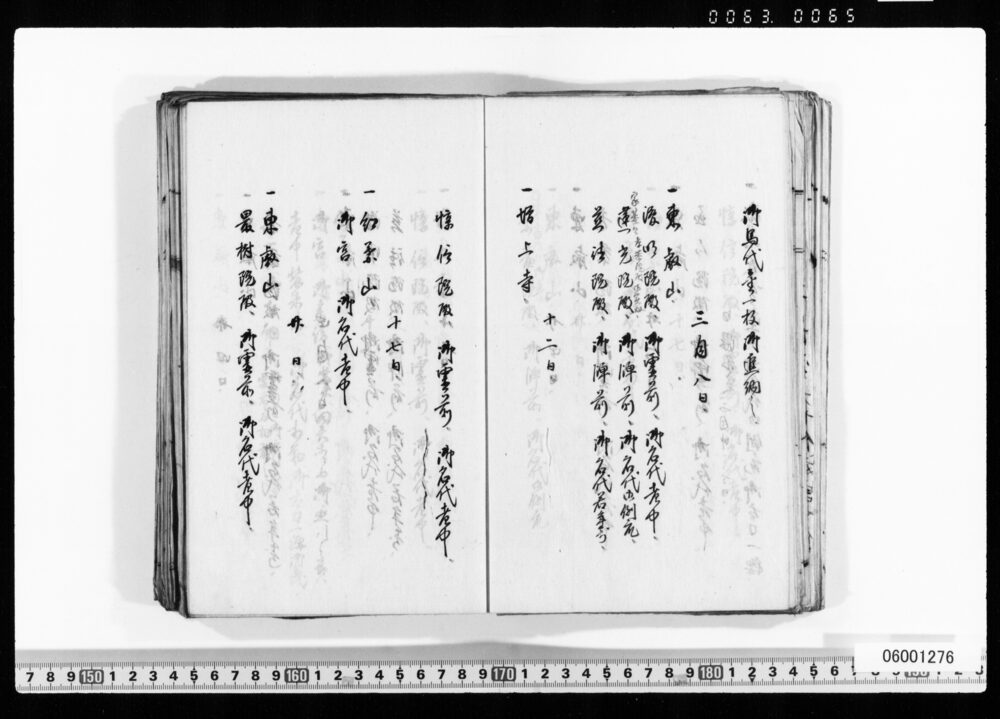 0063.0065
御馬代金一枚御進納之
三月八日
一東叡山、
浚明院殿、御霊前、御名代老中、
蓮光院殿、御牌前、御名代内例元、
慈徳院殿、御牌前、御名代若年寄、
十二日
一増上寺、
惇信院殿、御霊前、御名代老中、
十七日
一紅葉山
御宮御名代老中、
廿日
一東叡山
最樹院殿、御霊前、御名代老中、
06001276
7 8 9 150 1 2 3 4 5 6 7 8 9 160 1 2 3 4 5 6 7 8 9 170 1 2 3 4 5 6 7 8 9 180 1 2 3 4 5 6